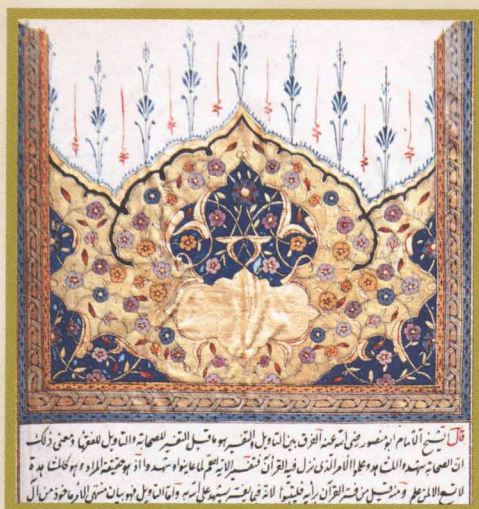 قال الشيخ الامام ابو منصور رضى الله عنه الفرق بين التاويل والتفسير هو ما قيل التفسير للصحابة والتاويل للفقها ومعنى ذلك
ان الصحابة شهدوا المشاهد وعلموا الامر الذى نزل فيه القرآن فتفسير الاية اهم لما عاينوا وشهدوا اذ هو حقيقة المراد وهو كالمشاهدة
لا تسع الا لمن علم ومنه قيل من فسر القرآن برأيه فليتبوأ لانه فيما يفسر يشهد على الله به واما التاويل فهو بيان منتهى الامر ماخوذ من آل